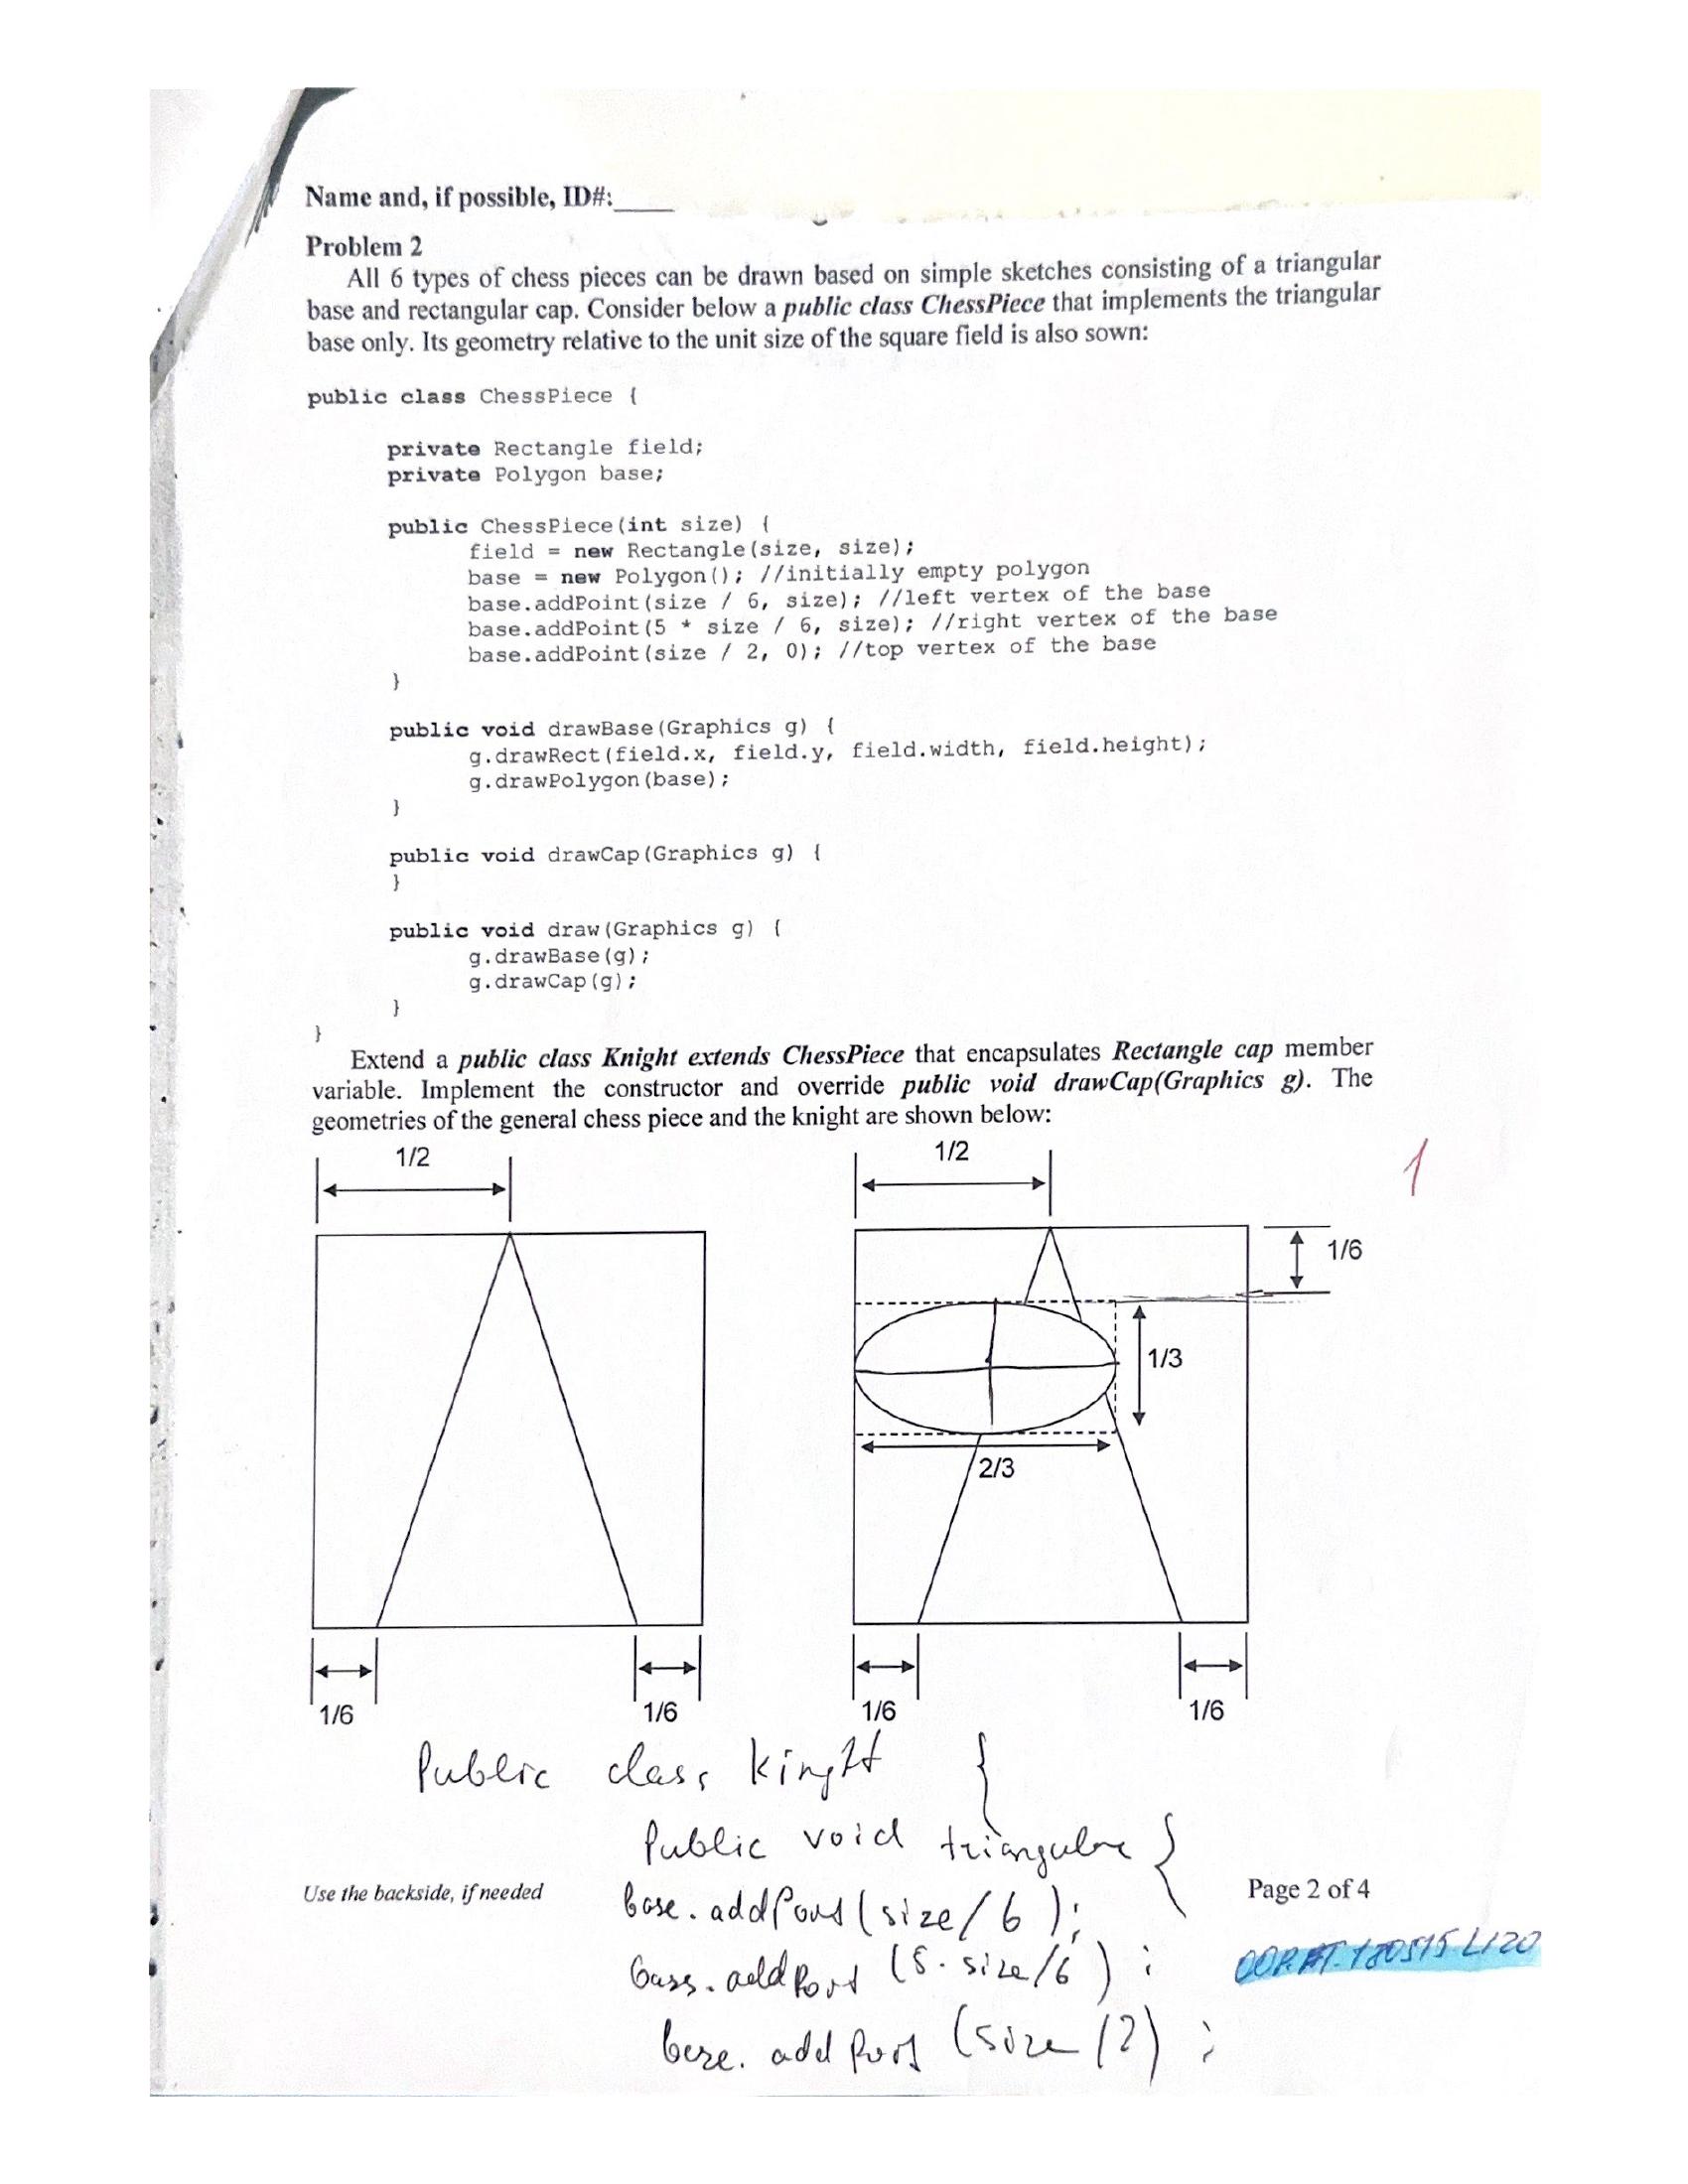 Name and, if possible, ID#:_____
Problem 2
All 6 types of chess pieces can be drawn based on simple sketches consisting of a triangular
base and rectangular cap. Consider below a public class ChessPiece that implements the triangular
base only. Its geometry relative to the unit size of the square field is also sown:
public class ChessPiece {
private Rectangle field;
private Polygon base;
public ChessPiece(int size) {
field = new Rectangle(size, size);
base = new Polygon(); //initially empty polygon
base.addPoint(size / 6, size); //left vertex of the base
base.addPoint(5 * size / 6, size); //right vertex of the base
base.addPoint(size / 2, 0); //top vertex of the base
}
public void drawBase(Graphics g) {
g.drawRect(field.x, field.y, field.width, field.height);
g.drawPolygon(base);
}
public void drawCap(Graphics g) {
}
public void draw(Graphics g) {
g.drawBase(g);
g.drawCap(g);
}
}
Extend a public class Knight extends ChessPiece that encapsulates Rectangle cap member
variable. Implement the constructor and override public void drawCap(Graphics g). The
geometries of the general chess piece and the knight are shown below:
1/2 1/2
1
1/6
1/3
2/3
1/6 1/6 1/6 1/6
Public class {
Public void {
Use the backside, if needed
Page 2 of 4
(size/6);
(5. size/6);
(size/2);